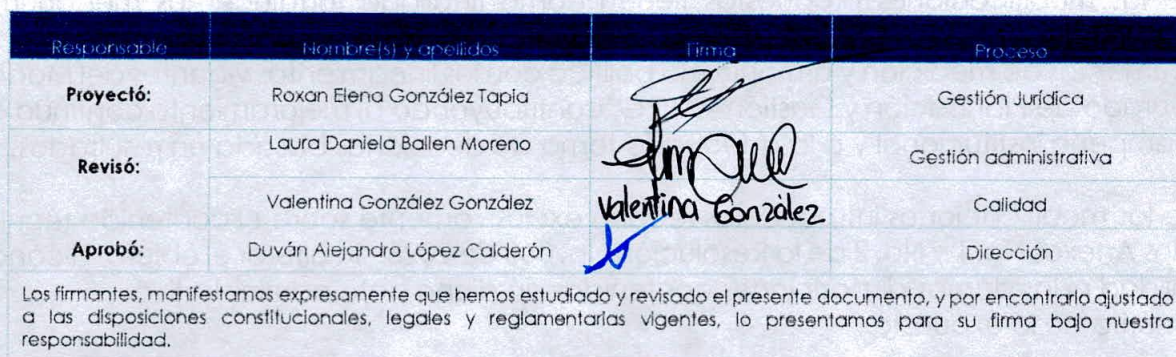 Responsable Nombre(s) y apellidos Firma Proceso
Proyectó: Roxan Elena González Tapia Gestión Jurídica
Revisó: Laura Daniela Ballen Moreno Gestión administrativa
Valentina González González Valentina González Calidad
Aprobó: Duván Alejandro López Calderón Dirección
Los firmantes, manifestamos expresamente que hemos estudiado y revisado el presente documento, y por encontrarlo ajustado
a las disposiciones constitucionales, legales y reglamentarias vigentes, lo presentamos para su firma bajo nuestra
responsabilidad.